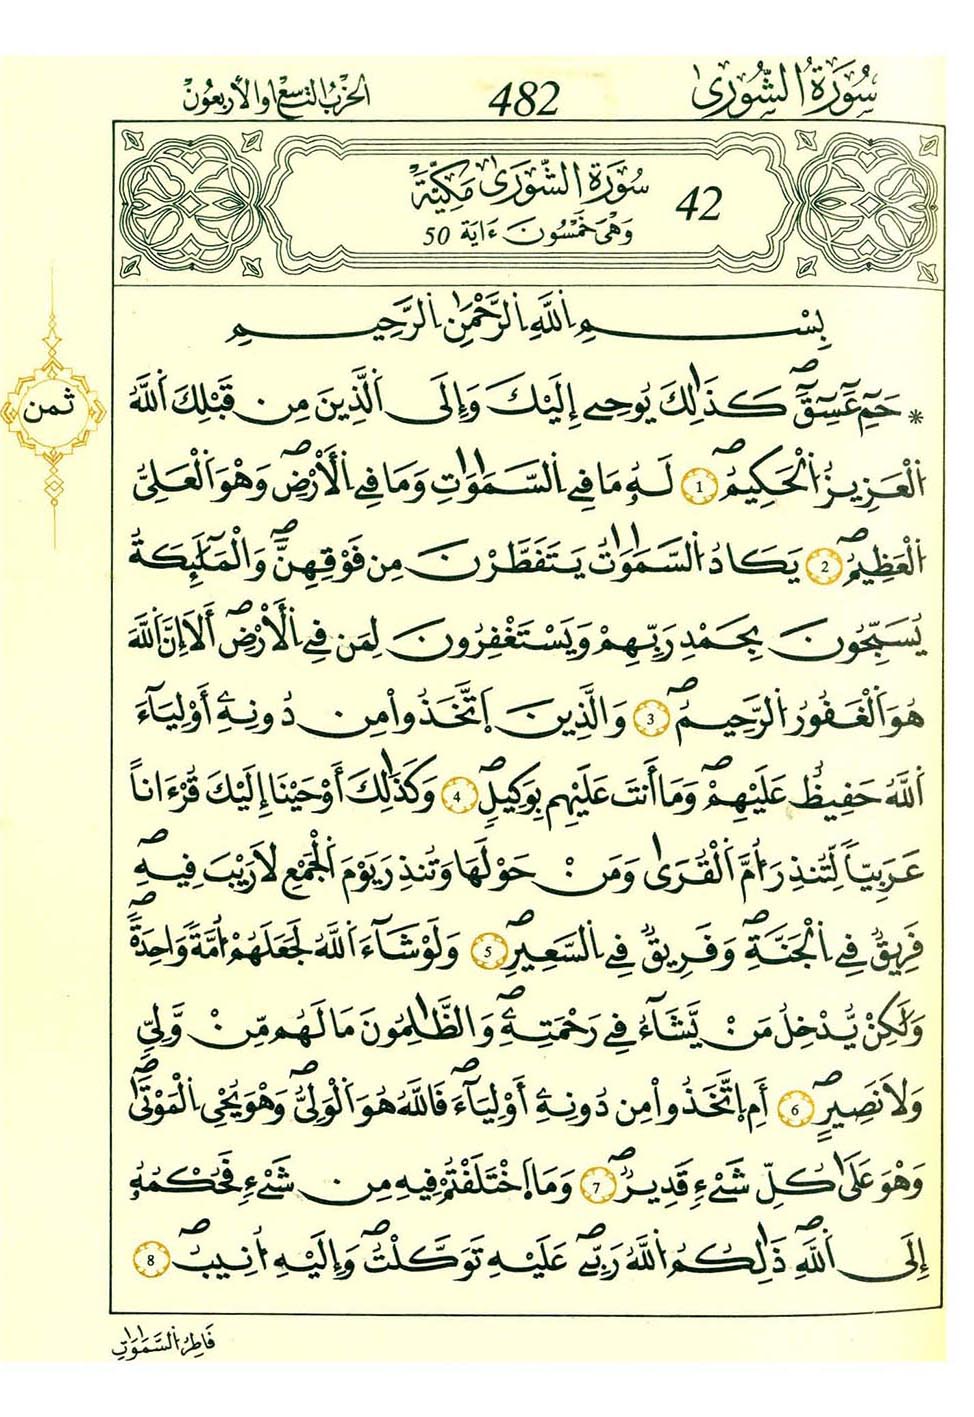 سُورَةُ الشُّورَىٰ
482
الحِزْبُ التَّاسِعُ وَالأَرْبَعُونَ
سُورَةُ الشُّورَىٰ مَكِّيَّةٌ 42
وَهْيَ خَمْسُونَ ءَايَةً 50
بِسْمِ اِ۬للَّهِ اِ۬لرَّحْمَٰنِ اِ۬لرَّحِيمِ
ثمن
* حَمِٓ عَٓسِٓقَٓۖ كَذَٰلِكَ يُوحِے إِلَيْكَ وَإِلَى اَ۬لذِينَ مِن قَبْلِكَ اَ۬للَّهُ
اُ۬لْعَزِيزُ اُ۬لْحَكِيمُۖ 1 لَهُۥ مَا فِے اِ۬لسَّمَٰوَٰتِ وَمَا فِے اِ۬لْأَرْضِۖ وَهْوَ اَ۬لْعَلِىُّ
اُ۬لْعَظِيمُۖ 2 يَكَادُ اُ۬لسَّمَٰوَٰتُ يَتَفَطَّرْنَ مِن فَوْقِهِنَّۖ وَالْمَلَٰٓئِكَةُ
يُسَبِّحُونَ بِحَمْدِ رَبِّهِمْ وَيَسْتَغْفِرُونَ لِمَن فِے اِ۬لْأَرْضِۖ أَلَا إِنَّ اَ۬للَّهَ
هُوَ اَ۬لْغَفُورُ اُ۬لرَّحِيمُۖ 3 وَالذِينَ اَ۪تَّخَذُواْ مِن دُونِهِۦٓ أَوْلِيَآءَ
اَ۬للَّهُ حَفِيظٌ عَلَيْهِمْۖ وَمَا أَنتَ عَلَيْهِم بِوَكِيلٍۖ 4 وَكَذَٰلِكَ أَوْحَيْنَا إِلَيْكَ قُرْءَاناً
عَرَبِيّاً لِّتُنذِرَ أُمَّ اَ۬لْقُرَىٰ وَمَنْ حَوْلَهَا وَتُنذِرَ يَوْمَ اَ۬لْجَمْعِ لَا رَيْبَ فِيهِۖ
فَرِيقٌ فِے اِ۬لْجَنَّةِۖ وَفَرِيقٌ فِے اِ۬لسَّعِيرِۖ 5 وَلَوْ شَآءَ اَ۬للَّهُ لَجَعَلَهُمْ أُمَّةً وَاحِدَةًۖ
وَلَٰكِنْ يُّدْخِلُ مَنْ يَّشَآءُ فِے رَحْمَتِهِۦۖ وَالظَّٰلِمُونَ مَا لَهُم مِّنْ وَّلِيٍّ
وَلَا نَصِيرٍۖ 6 أَمِ اِ۪تَّخَذُواْ مِن دُونِهِۦٓ أَوْلِيَآءَۖ فَاللَّهُ هُوَ اَ۬لْوَلِىُّۖ وَهْوَ يُحْيِ اِ۬لْمَوْتَىٰۖ
وَهْوَ عَلَىٰ كُلِّ شَےْءٍ قَدِيرٌۖ 7 وَمَا اَ۪خْتَلَفْتُمْ فِيهِ مِن شَےْءٍ فَحُكْمُهُۥ
إِلَى اَ۬للَّهِۖ ذَٰلِكُمُ اُ۬للَّهُ رَبِّےۖ عَلَيْهِ تَوَكَّلْتُۖ وَإِلَيْهِ أُنِيبُۖ 8
فَاطِرُ اُ۬لسَّمَٰوَٰتِ